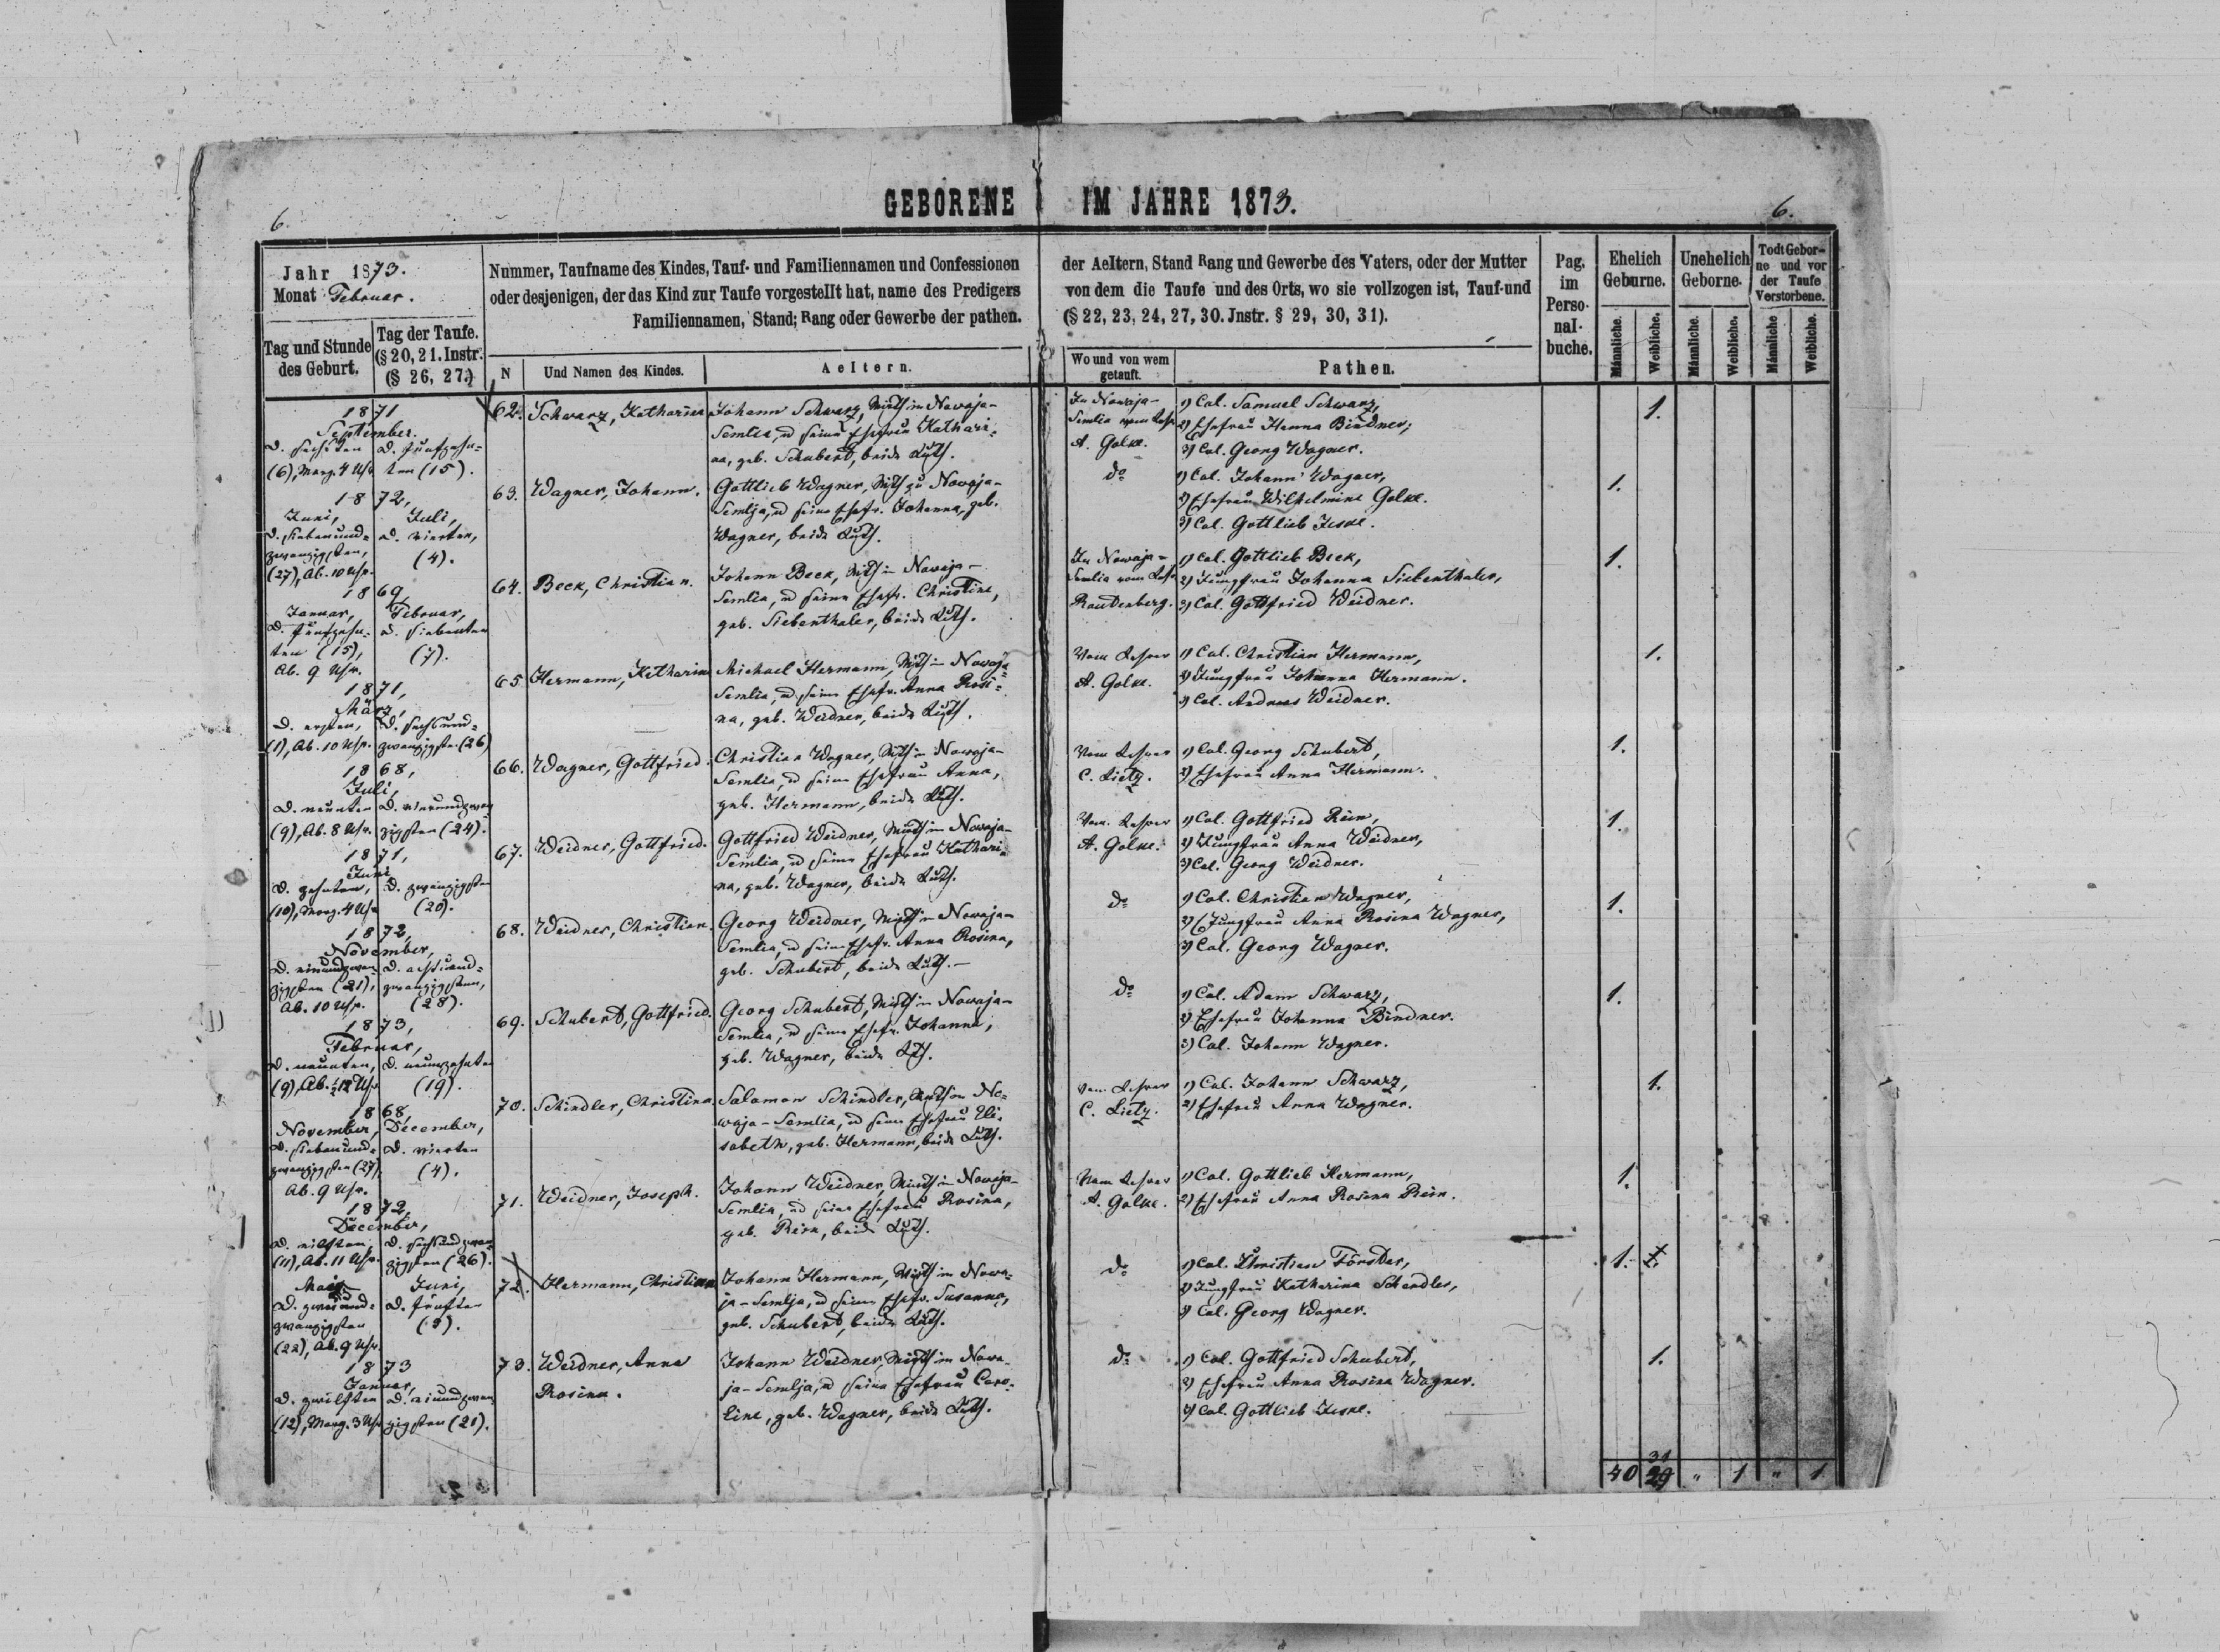 GEBORENE IM JAHRE 1873.
6.
6.
Jahr 1873.
Monat Februar.
Tag und Stunde des Geburt.
Tag der Taufe.
(§ 20, 21. Instr.
(§ 26, 27.)
Nummer, Taufname des Kindes, Tauf- und Familiennamen und Confessionen
oder desjenigen, der das Kind zur Taufe vorgestellt hat, name des Predigers
Familiennamen, Stand; Rang oder Gewerbe der pathen.
N
Und Namen des Kindes.
Aeltern.
der Aeltern, Stand Rang und Gewerbe des Vaters, oder der Mutter
von dem die Taufe und des Orts, wo sie vollzogen ist, Tauf-und
(§ 22, 23, 24, 27, 30. Jnstr. § 29, 30, 31).
Wo und von wem
getauft.
Pathen.
Pag.
im
Perso-
nal-
buche.
Ehelich
Geburne.
Unehelich
Geborne.
Todt Gebor-
ne und vor
der Taufe
Verstorbene.
Männliche.
Weibliche.
Männliche.
Weibliche.
Männliche
Weibliche.
1871
September.
D. sechsten
(6), Morg. 4 Uhr
D. fünfzehn-
ten (15).
62. Schwarz, Katharina
Johann Schwarz, Wirth in Nowaja-
Semlia, u seine Ehefrau Kathari-
na, geb. Schubert, beide Luth.
In Nowaja-
Semlia vom Lehr.
A. Golke.
1) Col. Samuel Schwarz,
2) Ehefrau Hanna Bindner;
3) Col. Georg Wagner.
1.
1872,
Juni,
D. siebenund-
zwanzigsten,
(27), Ab. 10 Uhr.
Juli,
D. vierten,
(4).
63. Wagner, Johann.
Gottlieb Wagner, Wirth zu Nowaja-
Semlja, u seine Ehefr. Johanna, geb.
Wagner, beide Luth.
do
1) Col. Johann Wagner,
2) Ehefrau Wilhelmine Golke.
3) Col. Gottlieb Jeske.
1.
1869,
Januar,
D. fünfzehn-
ten (15),
Ab. 9 Uhr.
Februar,
D. siebenten
(7).
64. Beck, Christian.
Johann Beck, Wirth in Nowaja-
Semlia, u seine Ehefr. Christine,
geb. Siebenthaler, beide Luth.
In Nowaja-
Semlia vom Lehr.
Rautenberg.
1) Col. Gottlieb Beck,
2) Jungfrau Johanna Siebenthaler,
3) Col. Gottfried Weidner.
1.
1871,
März,
D. ersten,
(1), Ab. 10 Uhr.
D. sechsund-
zwanzigsten (26)
65. Hermann, Katharina
Michael Hermann, Wirth in Nowaja-
Semlia, u seine Ehefr. Anna Rosi-
na, geb. Weidner, beide Luth.
Vom Lehrer
A. Golke.
1) Col. Christian Hermann,
2) Jungfrau Johanna Hermann.
3) Col. Andreas Weidner.
1.
1868,
Juli,
D. neunten
(9), Ab. 8 Uhr.
D. vierundzwan
zigsten (24).
66. Wagner, Gottfried.
Christian Wagner, Wirth in Nowaja-
Semlia, u seine Ehefrau Anna,
geb. Hermann, beide Luth.
Vom Lehrer
C. Lietz.
1) Col. Georg Schubert,
2) Ehefrau Anna Hermann.
1.
1871,
Juni
D. zehnten,
(10), Morg. 4 Uhr
D. zwanzigsten
(20).
67. Weidner, Gottfried.
Gottfried Weidner, Wirth in Nowaja-
Semlia, u seine Ehefrau Kathari-
na, geb. Wagner, beide Luth.
Vom Lehrer
A. Golke.
1) Col. Gottfried Rein,
2) Jungfrau Anna Weidner,
3) Col. Georg Weidner.
1.
1872,
November,
D. einundzwan
zigsten (21),
Ab. 10 Uhr.
D. achtund-
zwanzigsten,
(28).
68. Weidner, Christian.
Georg Weidner, Wirth in Nowaja-
Semlia, u seine Ehefr. Anna Rosina,
geb. Schubert, beide Luth.
do
1) Col. Christian Wagner,
2) Jungfrau Anna Rosina Wagner,
3) Col. Georg Wagner.
1.
1873,
Februar,
D. neunten,
(9), Ab. ½12 Uhr
D. neunzehnten
(19).
69. Schubert, Gottfried.
Georg Schubert, Wirth in Nowaja-
Semlia, u seine Ehefr. Johanna,
geb. Wagner, beide Luth.
do
1) Col. Adam Schwarz,
2) Ehefrau Johanna Bindner.
3) Col. Johann Wagner.
1.
1868,
November,
D. siebenund-
zwanzigsten (27),
Ab. 9 Uhr.
December,
D. vierten
(4).
70. Schindler, Christina
Salomon Schindler, Wirth in No-
waja-Semlia, u seine Ehefrau Eli-
sabeth, geb. Hermann, beide Luth.
Vom Lehrer
C. Lietz.
1) Col. Johann Schwarz,
2) Ehefrau Anna Wagner.
1.
1872,
December,
D. eilften
(11), Ab. 11 Uhr.
D. sechsundzwan
zigsten (26).
71. Weidner, Joseph.
Johann Weidner, Wirth in Nowaja-
Semlia, u seine Ehefrau Rosina,
geb. Rein, beide Luth.
Vom Lehrer
A. Golke.
1) Col. Gottlieb Hermann,
2) Ehefrau Anna Rosina Rein.
1.
Mai
D. zweiund-
zwanzigsten
(22), Ab. 9 Uhr.
Juni,
D. fünften
(5).
72. Hermann, Christian
Johann Hermann, Wirth in Nowa-
ja-Semlja, u seine Ehefr. Susanna,
geb. Schubert, beide Luth.
do
1) Col. Christian Förster,
2) Jungfrau Katharina Schendler,
3) Col. Georg Wagner.
1. 1.
1873
Januar,
D. zwölften
(12), Morg. 3 Uhr
D. einundzwan
zigsten (21).
73. Weidner, Anna
Rosina.
Johann Weidner, Wirth in Nowa-
ja-Semlja, u seine Ehefrau Caro-
line, geb. Wagner, beide Luth.
do
1) Col. Gottfried Schubert,
2) Ehefrau Anna Rosina Wagner.
3) Col. Gottlieb Jeske.
1.
31
40 29 " 1 " 1